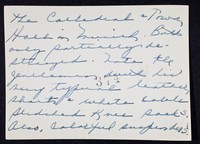 The Cathedral & Town
Hall in Munich. Both
only partially de-
stroyed. Note the
gentleman with his
very typical leather
shorts & white cable
stitched knee socks.
Also, colorful suspenders.